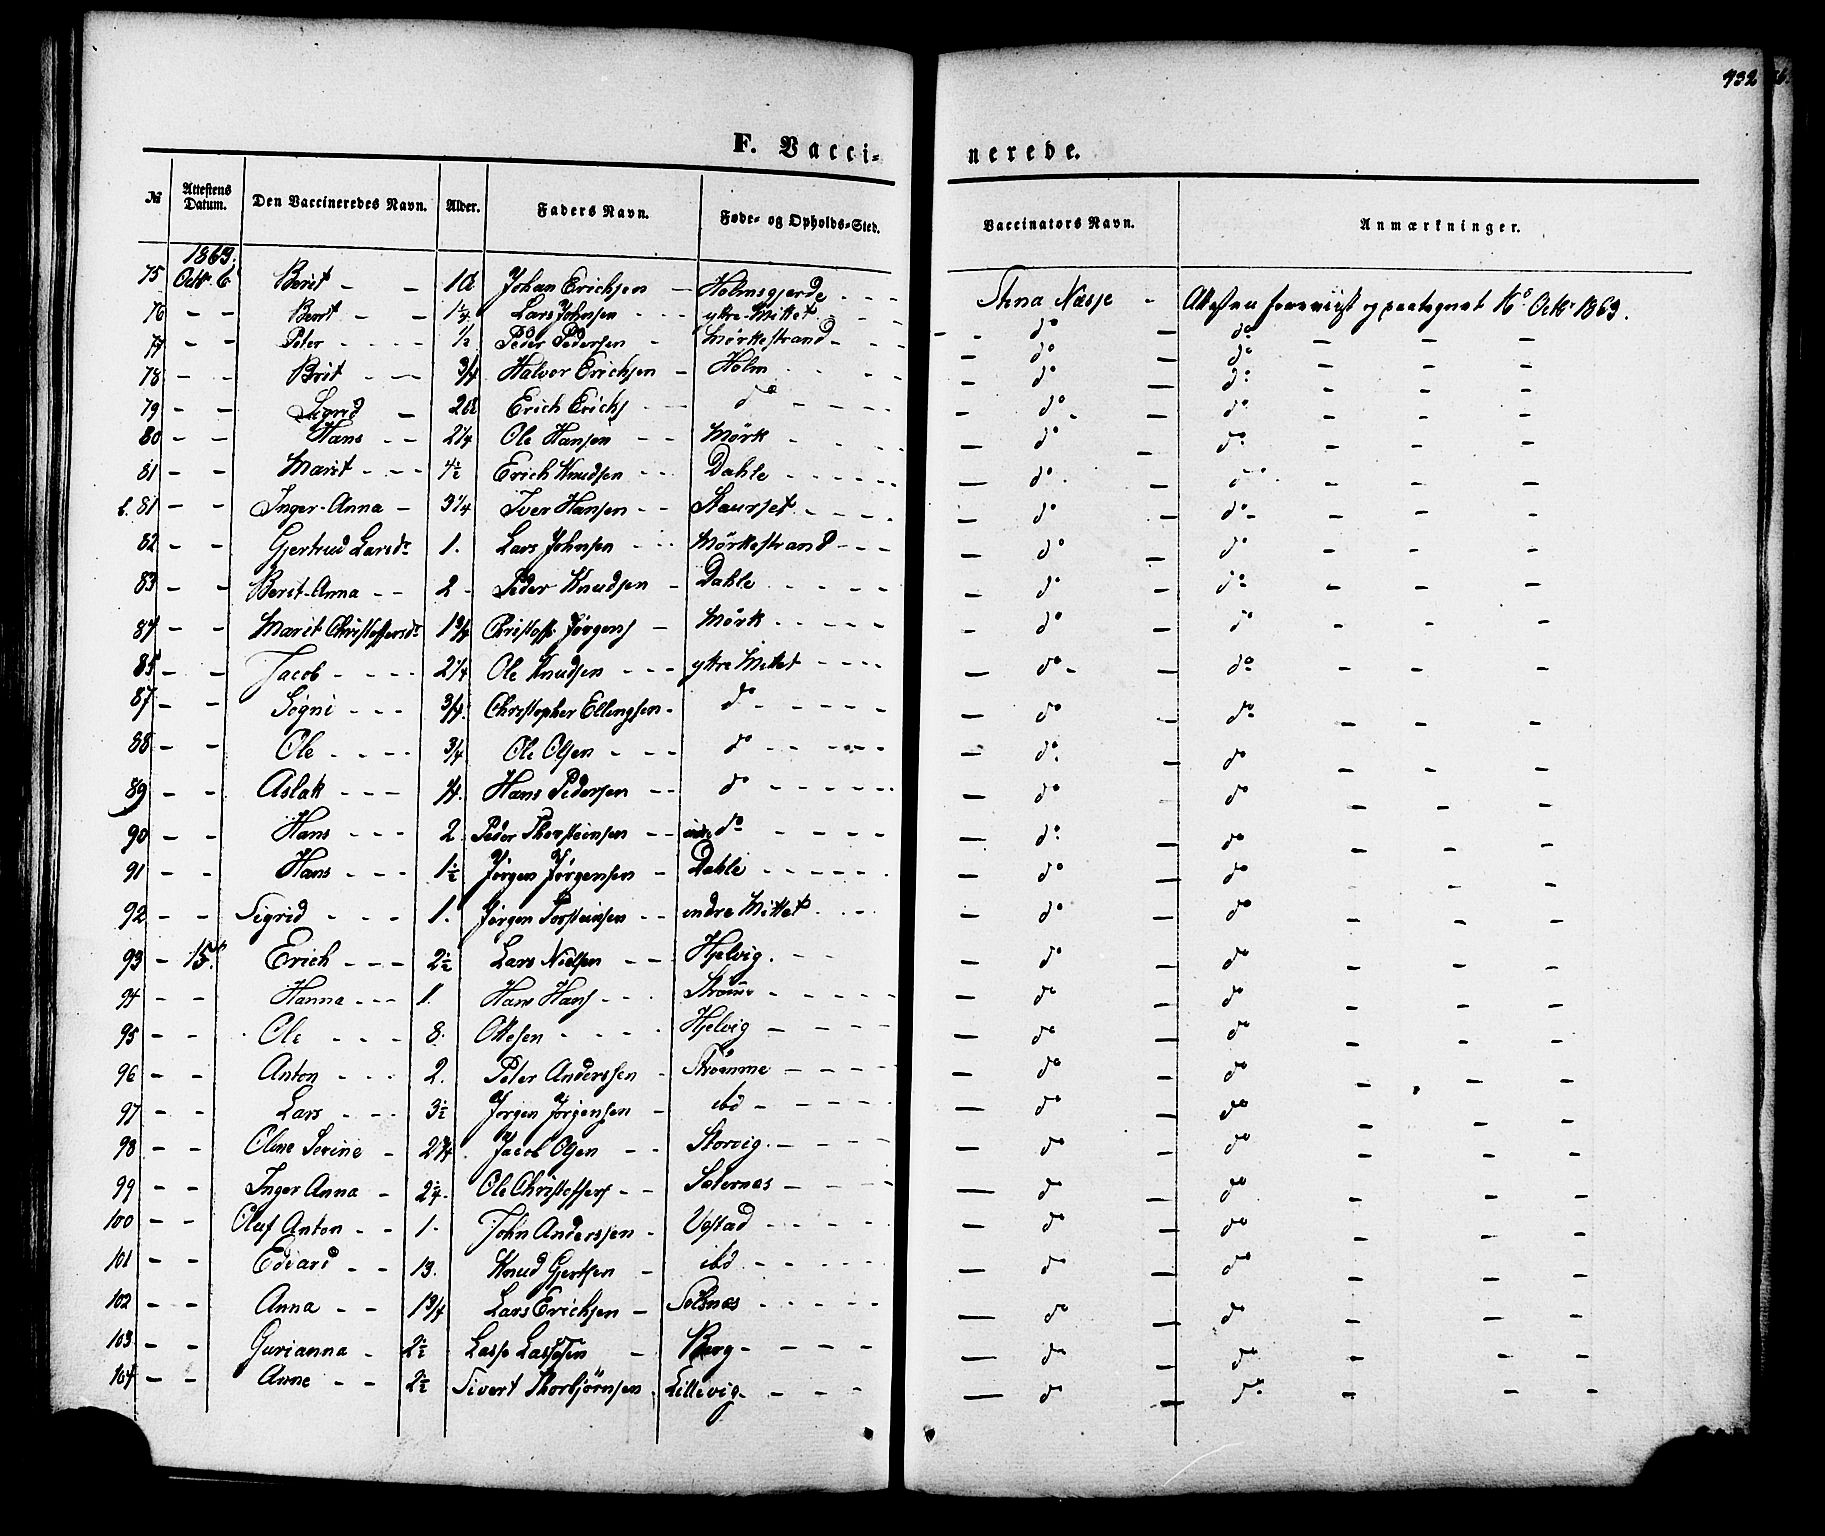 432
F. Vacci-
nerede.
№ Attestens Datum. Den Vaccineredes Navn. Alder. Faders Navn. Føde- og Opholds-Sted. Vaccinators Navn. Anmærkninger.
1863.
75 Octbr 6 Berit - - 1 Johan Erichsen - Holmsgjerde - - - Stina Næsje - Attesten foreviist og paategnet Octbr 1863.
76 - - Berit - - 1¼ Lars Johnsen - - - ytre Mittet - - do - do - - -
77 - - Peter - - - - ½ Peder Pedersen - Mörkestrand - - do - do - - -
78 - - Brit - - - 3/4 Halvor Erichsen - Holm - - - do - do - - -
79 - - Sigrid - 2 Erich Erichs - - do - - - do - do - - -
80 - - Hans - - 2¼ Ole Hansen - - Mörk - - - do - do - - -
81 - - Marit - - - 4½ Erich Knudsen - - Dahle - - - - do - do - - -
b. 81 - - Inger-Anna - 3¼ Iver Hansen - - Staurset - - - do - do - - -
82 - - Gjertrud Larsdr 1. Lars Johnsen - - Mörkestrand - - - do - do - - -
83 - - Berit-Anna - - 2 - Peder Knudsen - Dahle - - - - do - do - - -
84 - - Marit Christoffersdr 1 3/4 Christoff. Jørgens - Mörk - - - - do - do - - -
85 - - Jacob - - - - 2¼ Ole Knudsen - - - ytre Mittet - - - - do - do - - -
87 - - Sogni - - - 3/4 Christopher Ellingsen - do - - - - do - do - - -
88 - - Ole - - - - 3/4 Ole Olsen - - - do - - - - do - do - - -
89 - - Aslak - - - 4. Hans Pedersen - - do - - - - - do - do - - -
90 - - Hans - - - 2. Peder Thorsteinsen - - indr do - - - - do - do - - -
91 - - Hans - - - 1½ Jørgen Jørgensen - Dahle - - - - - do - do - - -
92 - - Sigrid - - - 1. Jørgen Torsteinsen - - indre Mittet - - - do - do - - -
93 - 15. Erich - - - 2½ Lars Nielsen - - Hjelvig - - - do - do - - -
94 - - Hanna - - - 1. Hans Hans - - - Strømme - - - - do - do - - -
95 - - Ole - - - 8. Ottesen - - - - Hjelvig - - - - do - do - - -
96 - - Anton - - - 2. Peter Anderssen - Strømme - - - - do - do - - -
97 - - Lars - - - 3½ Jørgen Jørgensen - ibd - - - - do - do - - -
98 - - Oline Serine - 2 3/4 Jacob Olsen - - Storvig - - - - do - do - - -
99 - - Inger Anna - 2¼ Ole Christoffers - - Seternæs - - - - do - do - - -
100 - - Oluf Anton - - 1. John Anderssen - Vestad - - - - do - do - - -
101 - - Edvard - - 13. Knud Gjertsen - ibd - - - - do - do - - -
102 - - Anna - - 1 3/4 Lars Erichsen - Solsnæs - - - - do - do - - -
103 - - Gurianna - 2½ Lasse Lassesen - Berg - - - - do - do - - -
104 - - Anne - - 2½ Sivert Thorbjörnsen Lillevig - - - - do - do - - -